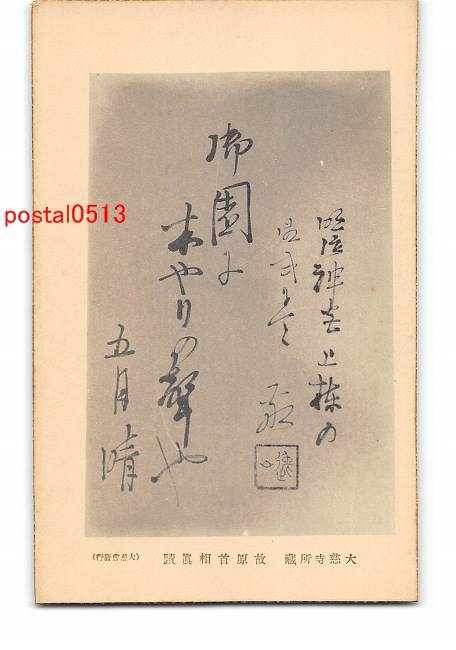 明治神宮上棟の
盛式に
敬
御園に
木やりの聲や
五月晴
大慈寺所藏 故原首相眞蹟
(大慈會發行)
postal0513